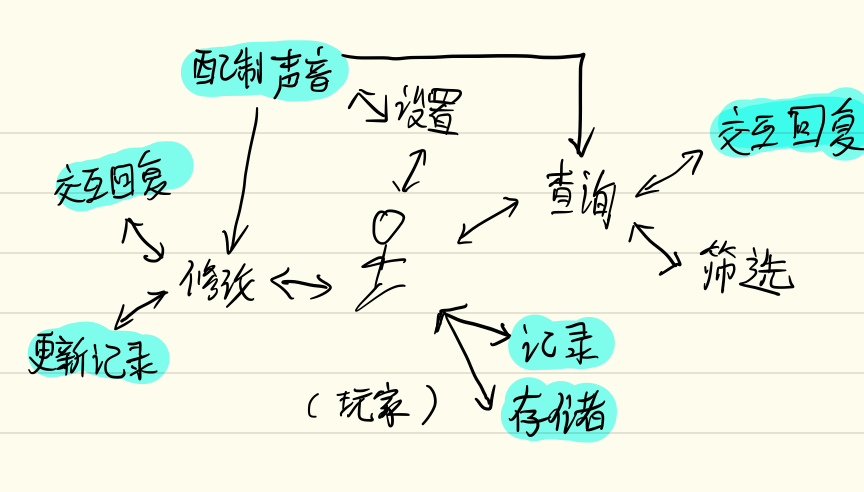 配制声音
设置
交互回复
交互回复
查询
修改
筛选
更新记录
记录
(玩家)
存储者